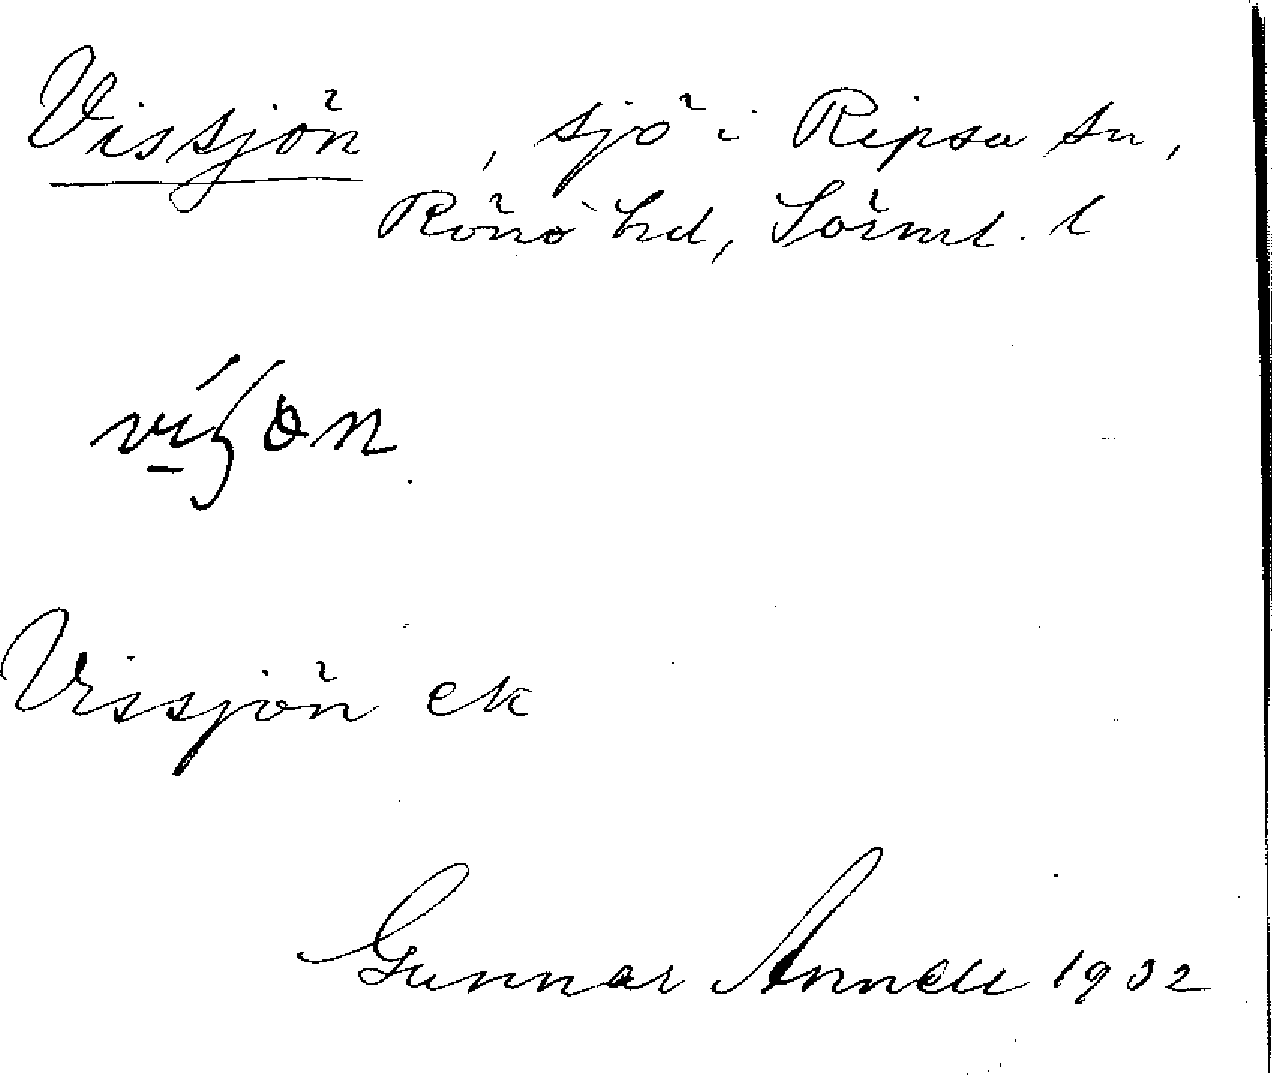 Vissjön, sjö i Ripsa sn,
Rönö hd, Sörml. l
Vissjön ek
Gunnar Annell 1932